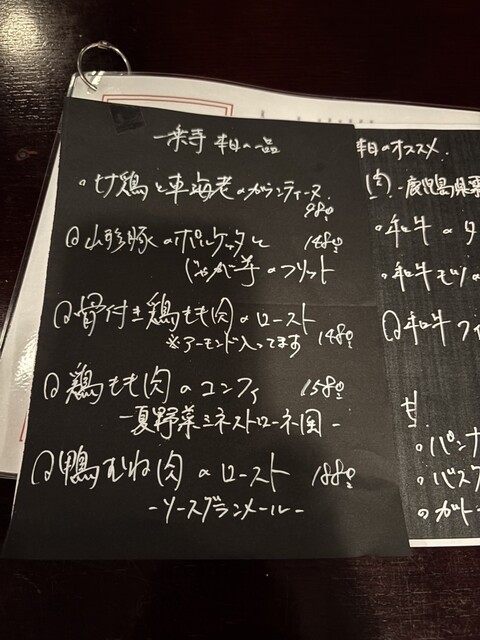 本日の一品
・甘鶏と車海老のガランティーヌ
980
山形豚のポルケッタと 1480
じゃが芋のフリット
骨付き鶏もも肉のロースト
※アーモンド入ってます 1480
鶏もも肉のコンフィ 1580
-夏野菜ミネストローネ風-
鴨むね肉のロースト 1880
-ソースグランメール-
本日のオススメ
-鹿児島県
・和牛の
・和牛モツ
和牛フィ
・パンナ
・バスク
・ガト